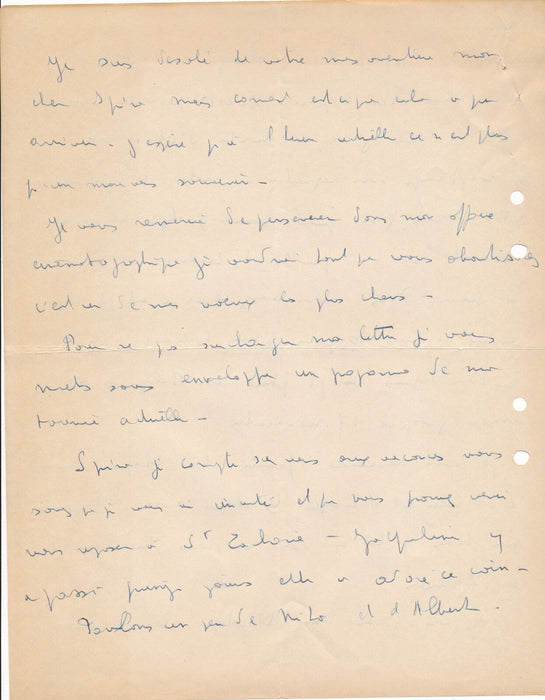 Je suis désolé de votre mésaventure mon
cher Spiro mais comment est ce que cela a pu
arriver. J'espère qu'à l'heure actuelle ce n'est plus
qu'un mauvais souvenir -
Je vous remercie de persévérer dans mon affaire
cinématographique je voudrai tant que vous aboutissiez
c'est un de mes voeux les plus chers -
Pour ne pas surcharger ma lettre je vous
mets sous enveloppe un programme de ma
tournée actuelle -
Spiro je compte sur vous aux vacances vous
savez que je vous ai invité et que vous pouvez venir
vous reposer à St Zacharie - Jacqueline y
a passé jours elle a adoré ce coin -
Parlons un peu de Nito et d'Albert.